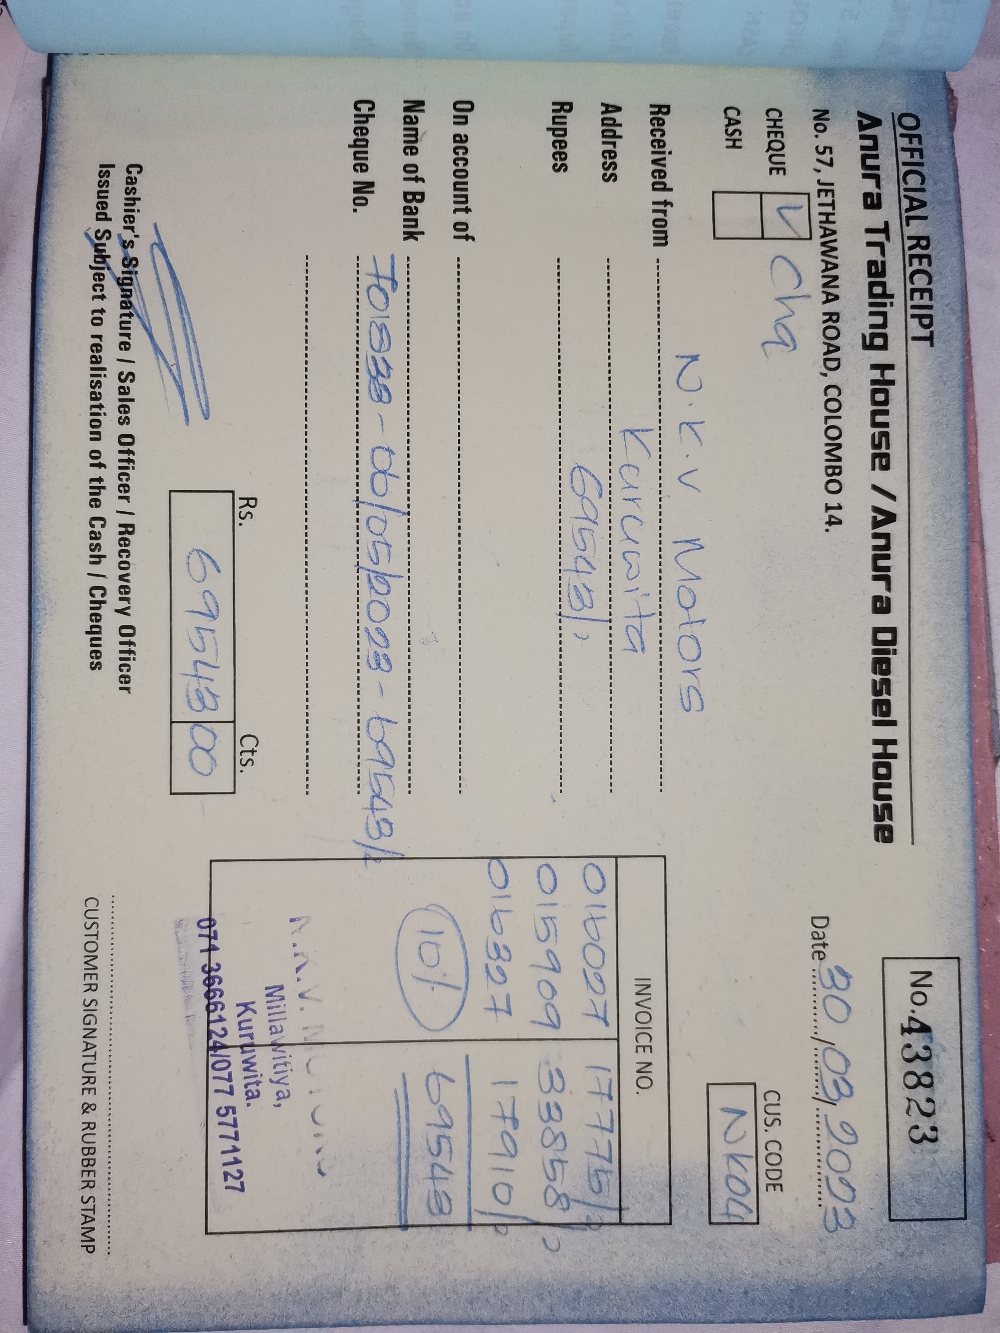 OFFICIAL RECEIPT
Anura Trading House / Anura Diesel House
No. 57, JETHAWANA ROAD, COLOMBO 14.
No. 43823
Date 30/03/2023
CHEQUE V chq
CASH
CUS. CODE
NK04
Received from N.K.V Motors
Address Kuruwita
Rupees 69543/=
On account of
Name of Bank
Cheque No. 701533 - 06/05/2023 - 69543/=
INVOICE NO.
016027 17775/=
015909 33858/=
016327 17910/=
10% 69543
Rs. Cts.
69543 00
N.K.V. MOTORS
Millawitiya,
Kuruwita.
071 3666124/077 5771127
Cashier's Signature / Sales Officer / Recovery Officer
Issued Subject to realisation of the Cash / Cheques
CUSTOMER SIGNATURE & RUBBER STAMP